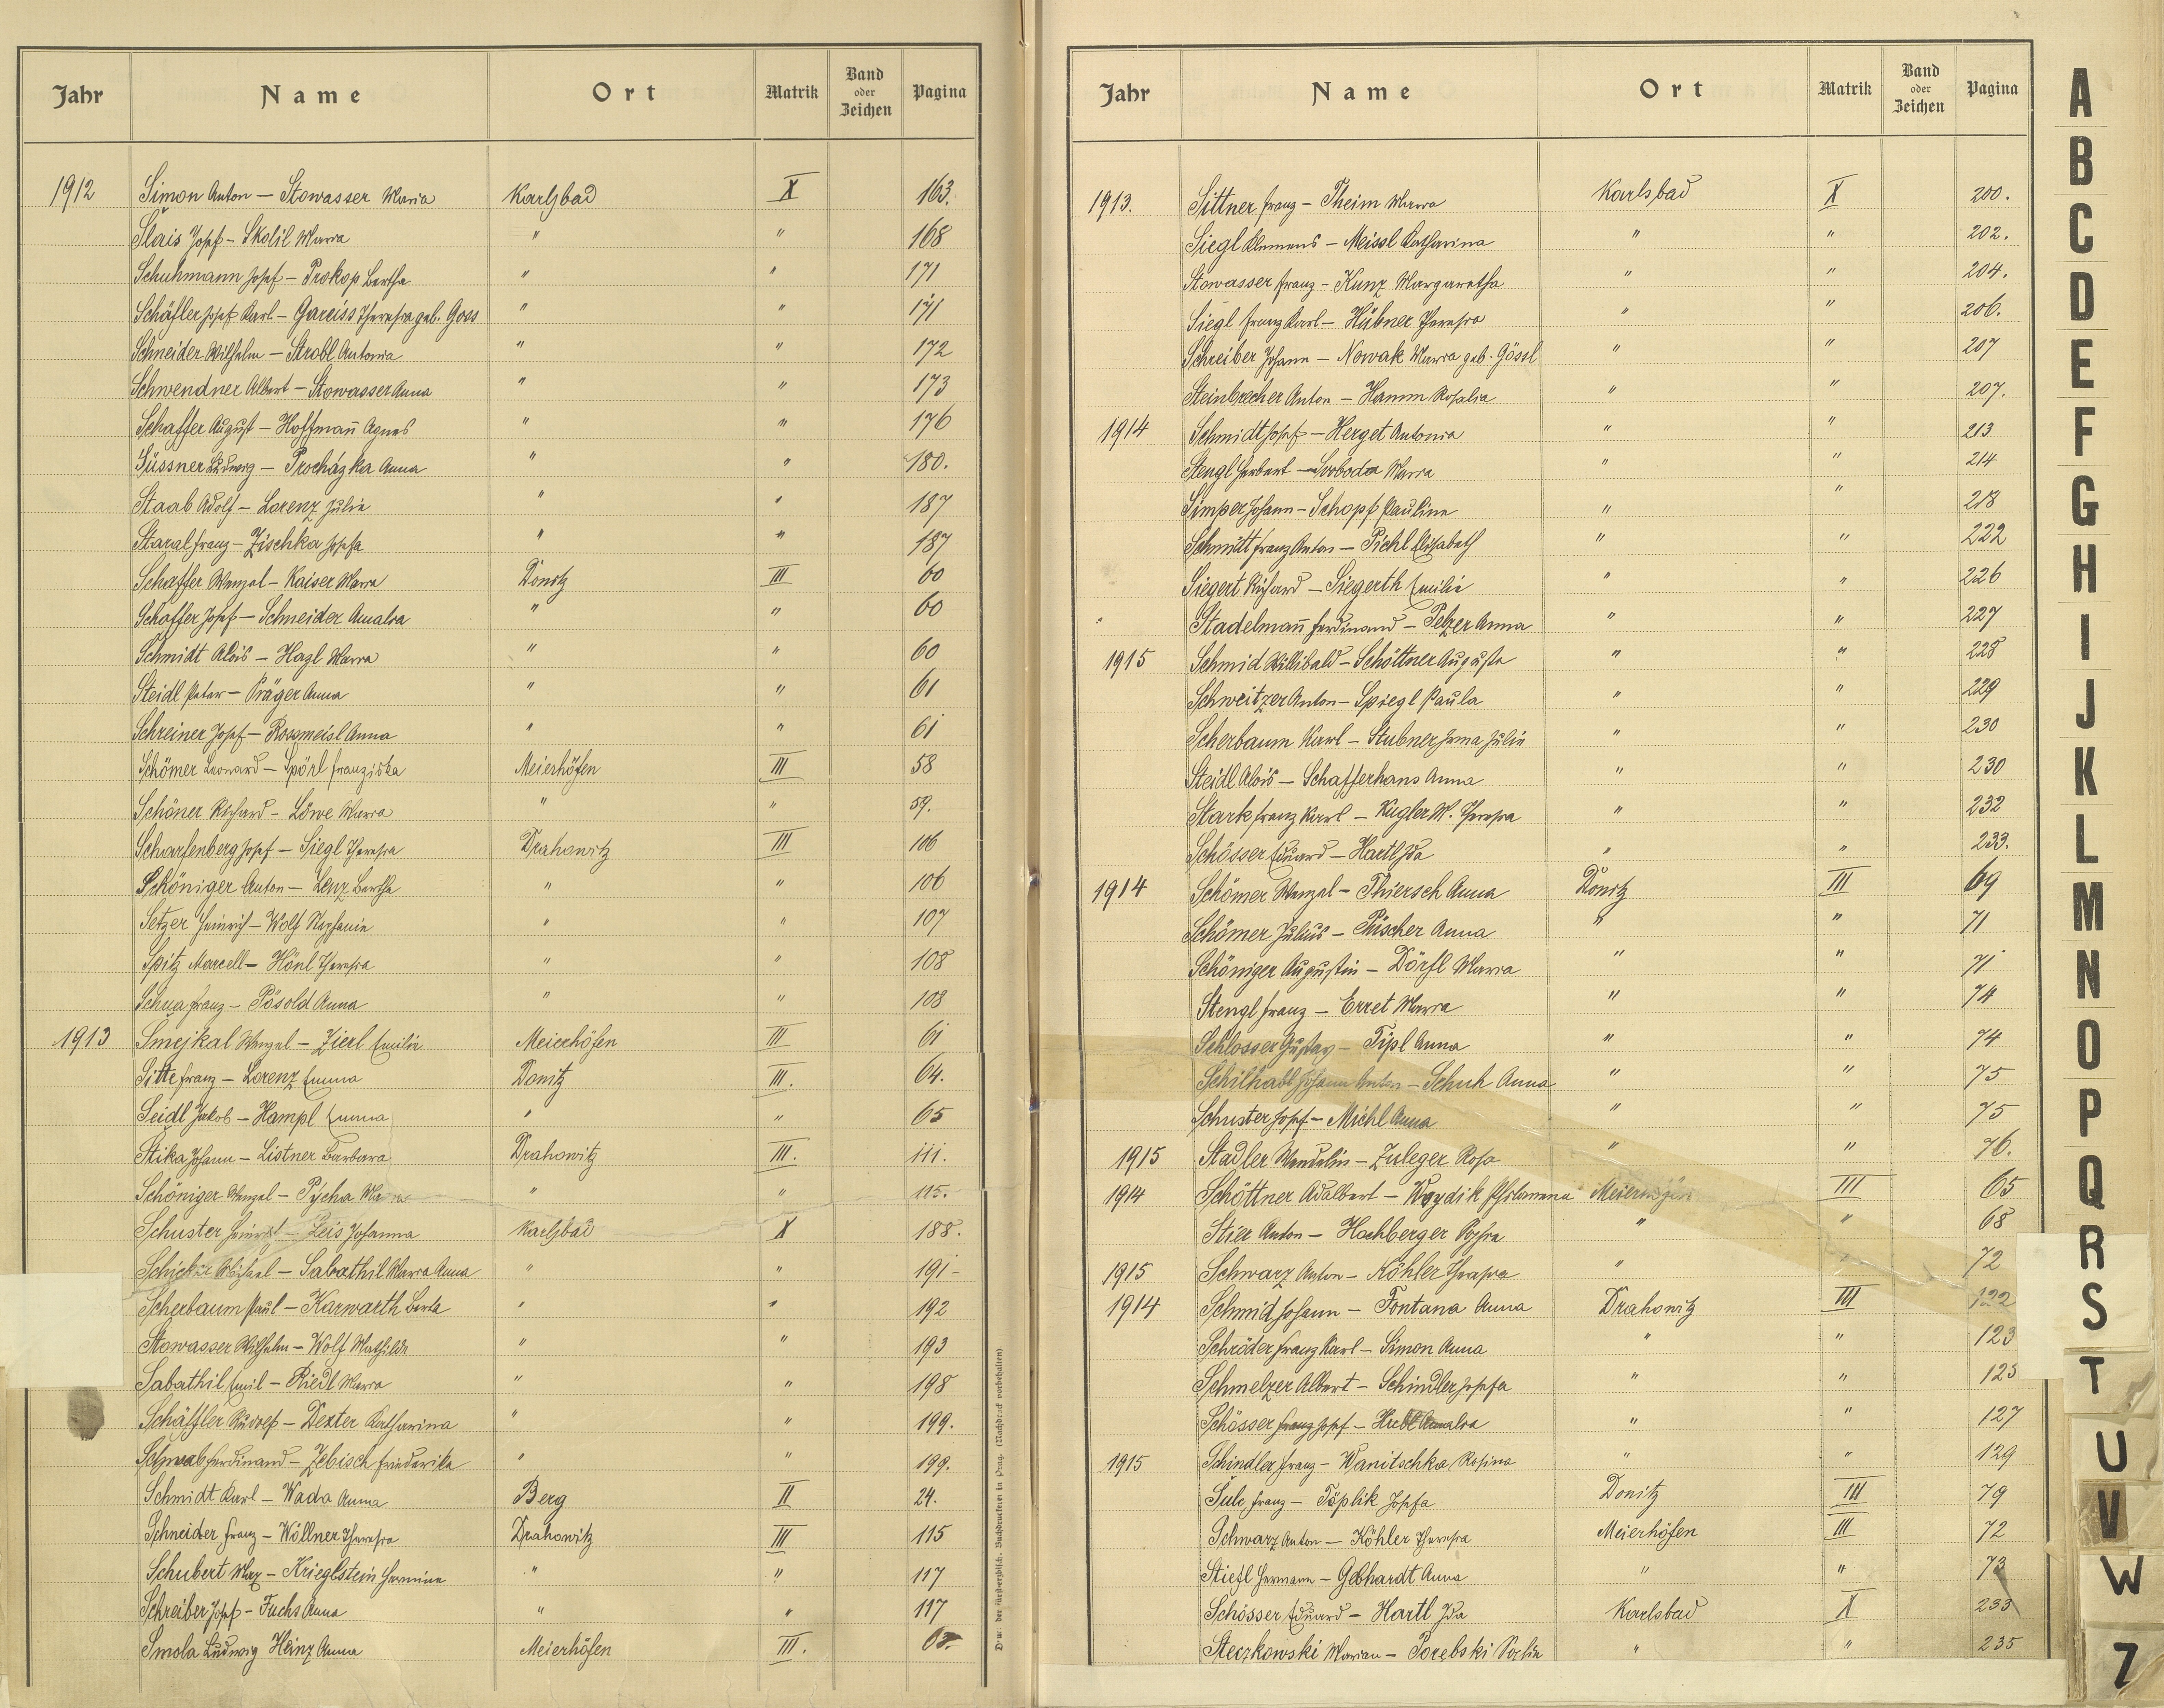 Jahr Name Ort Matrik Band oder Zeichen Pagina
1912 Simon Anton – Stowasser Maria Karlsbad X 163.
Slais Josef – Skolil Maria " " 168
Schuhmann Josef – Prokop Bertha " " 171
Schäfler Josef Karl – Gareiss Theresia geb. Goss " " 171
Schneider Wilhelm – Strobl Antonia " " 172
Schwendner Albert – Stowasser Anna " " 173
Schaffer August – Hoffmañ Agnes " " 176
Süssner Ludwig – Procházka Anna " " 180.
Staab Adolf – Lorenz Julie " " 187
Staral Franz – Zischka Josefa " " 187
Schaffer Wenzel – Kaiser Maria Donitz III 60
Schaffer Josef – Schneider Amalia " " 60
Schmidt Alois – Hazl Maria " " 60
Steidl Peter – Präger Anna " " 61
Schreiner Josef – Rossmeisl Anna " " 61
Schömer Leonard – Spörl Franziska Meierhöfen III 58
Schöner Richard – Löwe Maria " " 59.
Scharfenberg Josef – Siegl Theresia Drahowitz III 106
Schöniger Anton – Lenz Bertha " " 106
Setzer Heinrich – Wolf Stephanie " " 107
Spitz Marcell – Hönl Theresia " " 108
Schua Franz – Pösold Anna " " 108
1913 Smejkal Wenzel – Zierl Emilie Meierhöfen III 61
Sitte Franz – Lorenz Emma Donitz III. 64.
Seidl Jakob – Hampl Emma " " 65
Stika Johann – Listner Barbara Drahowitz III. 111.
Schöniger Wenzel – Pycha " " 115.
Schuster Heinrich – Leis Johanna Karlsbad X 188.
Michael – Sabathil Maria Anna " " 191 –
Scherbaum Paul – Karwarth Berta " " 192
Stowasser Wilhelm – Wolf Mathilde " " 193
Sabathil Emil – Riedl Maria " " 198
Schäffler Rudolf – Dexter Katharina " " 199.
Schwab Ferdinand – Zebisch Friederike " " 199.
Schmidt Karl – Wada Anna Berg II 24.
Schneider Franz – Wöllner Theresia Drahowitz III 115
Schubert Max – Krieglstein Hermine " " 117
Schreiber Josef – Fuchs Anna " " 117
Smola Ludwig Heinz Anna Meierhöfen III.
Jahr Name Ort Matrik Band oder Zeichen Pagina
1913. Sittner Franz – Theim Maria Karlsbad X 200.
Siegl Klemens – Meissl Katharina " " 202.
Stowasser Franz – Kunz Margaretha " " 204.
Siegl Franz Karl – Hübner Theresia " " 206.
Schreiber Johann – Nowak Maria geb. Gössl " " 207
Steinbrecher Anton – Hamm Rosalia " " 207.
1914 Schmidt Josef – Herget Antonia " " 213
Stengl Herbert – Svoboda Maria " " 214
Simper Johann – Schopf Pauline " " 218
Schmitt Franz Anton – Pichl Elisabeth " " 222
Siegert Richard – Siegerth Emilie " " 226
Stadelmañ Ferdinand – Pelzer Anna " " 227
1915 Schmid Willibald – Schöttner Auguste " " 228
Schweitzer Anton – Spiegl Paula " " 229
Scherbaum Karl – Stubner Irma Julie " " 230
Steidl Alois – Schafferhans Anna " " 230
Stark Franz Karl – Kugler M. Theresia " " 232
Schösser Eduard – Hartl Ida " " 233.
1914 Schömer Wenzel – Thiersch Anna Donitz III 69
Schömer Julius – Pischer Anna " " 71
Schöniger Augustin – Dörfl Maria " " 71
Stengl Franz – Erret Maria " " 74
Schlosser Gustav – Tipl Anna " " 74
Schilhabl Johann Anton – Schuh Anna " " 75
Schuster Josef – Michl Anna " " 75
1915 Stadler Wendelin – Zuleger Rosa " " 76.
1914 Schöttner Adalbert – Woydik Philomena Meierhöfen III 65
Stier Anton – Hochberger Sofia " " 68
1915 Schwarz Anton – Köhler Theresia " " 72
1914 Schmid Johann – Fontana Anna Drahowitz III 122
Schröder Franz Karl – Simon Anna " " 123
Schmelzer Albert – Schindler Josefa " " 125
Schösser Franz Josef – Amalia " " 127
1915 Schindler Franz – Wanitschka Rosina " " 129
Sulc Franz – Töplik Josefa Donitz III 79
Schwarz Anton – Köhler Theresia Meierhöfen III 72
Stiefl Hermann – Gebhardt Anna " " 73
Schösser Eduard – Hartl Ida Karlsbad X 233
Steczkowski Marian – Porebski Sofie " " 235
A
B
C
D
E
F
G
H
I
J
K
L
M
N
O
P
Q
R
S
T
U
V
W
Z